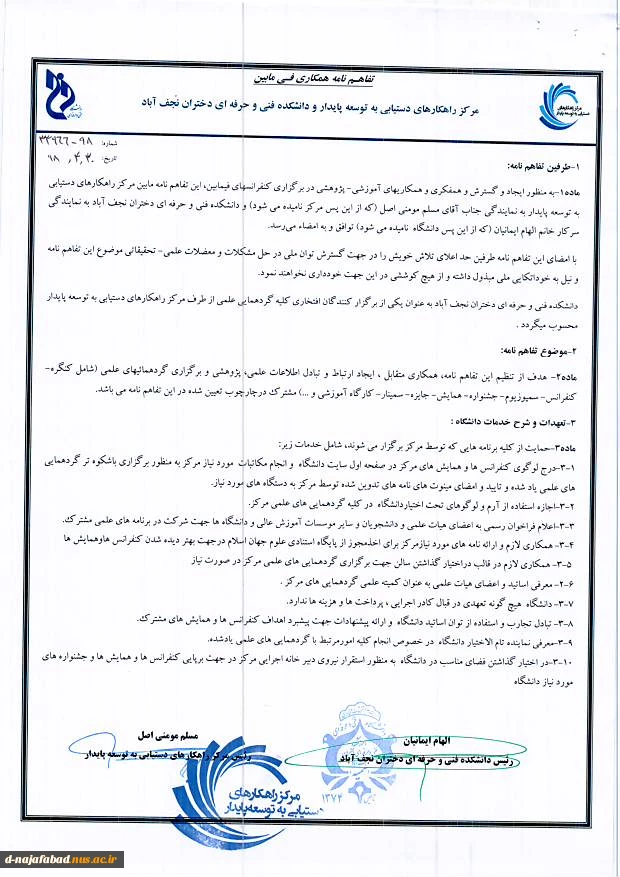 تفاهم نامه همکاری فی مابین
مرکز راهکارهای دستیابی به توسعه پایدار و دانشکده فنی و حرفه ای دختران نجف آباد
مرکز راهکارهای
دستیابی به توسعه پایدار
شماره:
تاریخ: ۹۸,۴,۳۰
۱-طرفین تفاهم نامه:
ماده۱-به منظور ایجاد و گسترش و همفکری و همکاریهای آموزشی- پژوهشی در برگزاری کنفرانسهای فیمابین، این تفاهم نامه مابین مرکز راهکارهای دستیابی
به توسعه پایدار به نمایندگی جناب آقای مسلم مومنی اصل (که از این پس مرکز نامیده می شود) و دانشکده فنی و حرفه ای دختران نجف آباد به نمایندگی
سرکار خانم الهام ایمانیان (که از این پس دانشگاه نامیده می شود) توافق و به امضاء می‌رسد.
با امضای این تفاهم نامه طرفین حد اعلای تلاش خویش را در جهت گسترش توان ملی در حل مشکلات و معضلات علمی- تحقیقاتی موضوع این تفاهم نامه
و نیل به خوداتکایی ملی مبذول داشته و از هیچ کوششی در این جهت خودداری نخواهند نمود.
دانشکده فنی و حرفه ای دختران نجف آباد به عنوان یکی از برگزار کنندگان افتخاری کلیه گردهمایی علمی از طرف مرکز راهکارهای دستیابی به توسعه پایدار
محسوب میگردد .
۲-موضوع تفاهم نامه:
ماده۲- هدف از تنظیم این تفاهم نامه، همکاری متقابل ، ایجاد ارتباط و تبادل اطلاعات علمی، پژوهشی و برگزاری گردهمائیهای علمی (شامل کنگره-
کنفرانس- سمپوزیوم- جشنواره- همایش- جایزه- سمینار- کارگاه آموزشی و ...) مشترک درچارچوب تعیین شده در این تفاهم نامه می باشد.
۳-تعهدات و شرح خدمات دانشگاه :
ماده۳-حمایت از کلیه برنامه هایی که توسط مرکز برگزار می شوند، شامل خدمات زیر:
۳-۱-درج لوگوی کنفرانس ها و همایش های مرکز در صفحه اول سایت دانشگاه و انجام مکاتبات مورد نیاز مرکز به منظور برگزاری باشکوه تر گردهمایی
های علمی یاد شده و تایید و امضای مینوت های نامه های تدوین شده توسط مرکز به دستگاه های مورد نیاز.
۳-۲-اجازه استفاده از آرم و لوگوهای تحت اختیاردانشگاه در کلیه گردهمایی های علمی مرکز.
۳-۳-اعلام فراخوان رسمی به اعضای هیات علمی و دانشجویان و سایر موسسات آموزش عالی و دانشگاه ها جهت شرکت در برنامه های علمی مشترک.
۳-۴- همکاری لازم و ارائه نامه های مورد نیازمرکز برای اخذمجوز از پایگاه استنادی علوم جهان اسلام درجهت بهتر دیده شدن کنفرانس هاوهمایش ها
۳-۵- همکاری لازم در قالب دراختیار گذاشتن سالن جهت برگزاری گردهمایی های علمی مرکز در صورت نیاز
۲-۶- معرفی اساتید و اعضای هیات علمی به عنوان کمیته علمی گردهمایی های مرکز .
۳-۷-دانشگاه هیچ گونه تعهدی در قبال کادر اجرایی ، پرداخت ها و هزینه ها ندارد.
۳-۸- تبادل تجارب و استفاده از توان اساتید دانشگاه و ارائه پیشنهادات جهت پیشبرد اهداف کنفرانس ها و همایش های مشترک.
۳-۹-معرفی نماینده تام الاختیار دانشگاه در خصوص انجام کلیه امورمرتبط با گردهمایی های علمی یادشده.
۳-۱۰-در اختیار گذاشتن فضای مناسب در دانشگاه به منظور استقرار نیروی دبیر خانه اجرایی مرکز در جهت برپایی کنفرانس ها و همایش ها و جشنواره های
مورد نیاز دانشگاه
الهام ایمانیان
رئیس دانشکده فنی و حرفه ای دختران نجف آباد
مسلم مومنی اصل
رئیس مرکز راهکارهای دستیابی به توسعه پایدار
۱۳۷۴
مرکز راهکارهای
دستیابی به توسعه پایدار
d-najafabad.nus.ac.ir